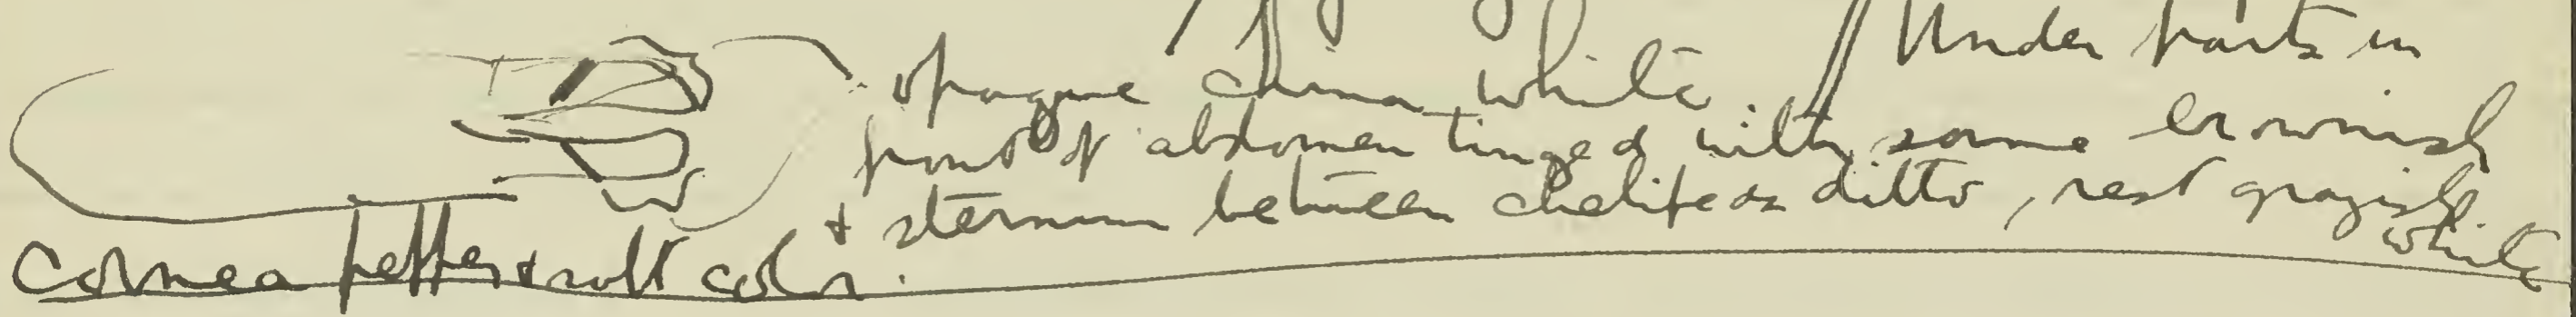 opaque china white. // Under parts in
front of abdomen tinged with some brownish
& sternum between chelipeds ditto, rest grayish
white
Cornea pepper & salt color.